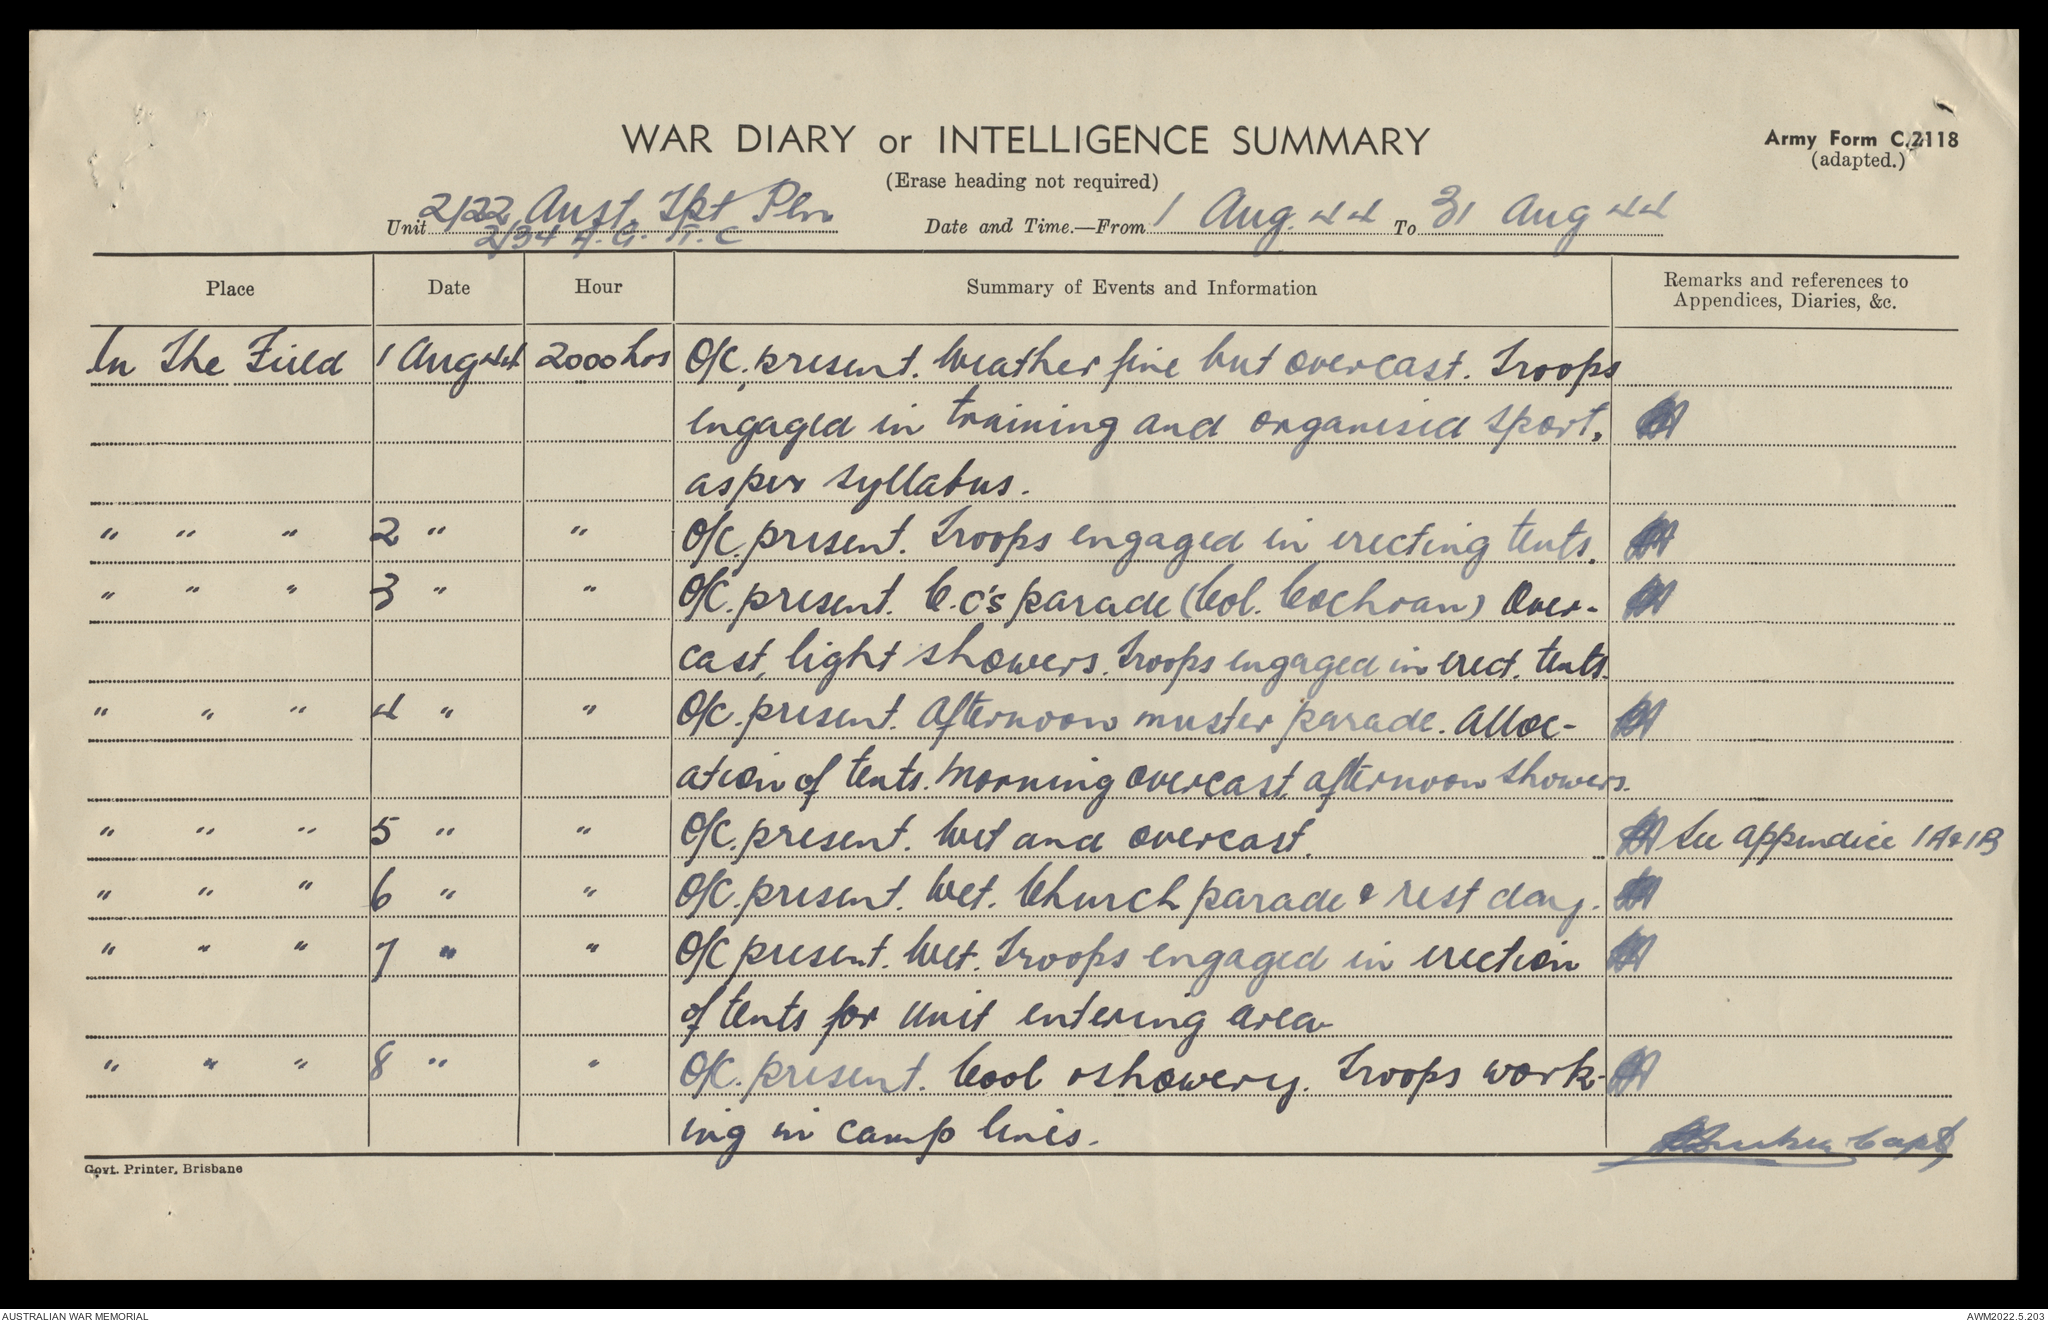 WAR DIARY or INTELLIGENCE SUMMARY
Army Form C.2118
(adapted.)
(Erase heading not required)
Unit 2/22 Aust. Tpt Pln
2/34 A.G. T. C
Date and Time.—From 1 Aug. 44 To 31 Aug 44
Place Date Hour Summary of Events and Information Remarks and references to
Appendices, Diaries, &c.
In The Field 1 Aug 44 2000 hrs O/C. present. Weather fine but overcast. Troops
engaged in training and organised sport,
as per syllabus.
" " " 2 " " O/C. present. Troops engaged in erecting tents.
" " " 3 " " O/C. present. C.C's parade (Col. Cochran) Over-
cast, light showers. Troops engaged in erect. tents.
" " " 4 " " O/C. present. Afternoon muster parade. Alloc-
ation of tents. Morning overcast, afternoon showers.
" " " 5 " " O/C. present. Wet and overcast. See appendice 1A & 1B
" " " 6 " " O/C. present. Wet. Church parade & rest day.
" " " 7 " " O/C present. Wet. Troops engaged in erection
of tents for unit entering area
" " " 8 " " O/C. present. Cool & showery. Troops work-
ing in camp lines.
Capt
Govt. Printer, Brisbane
AUSTRALIAN WAR MEMORIAL
AWM2022.5.203